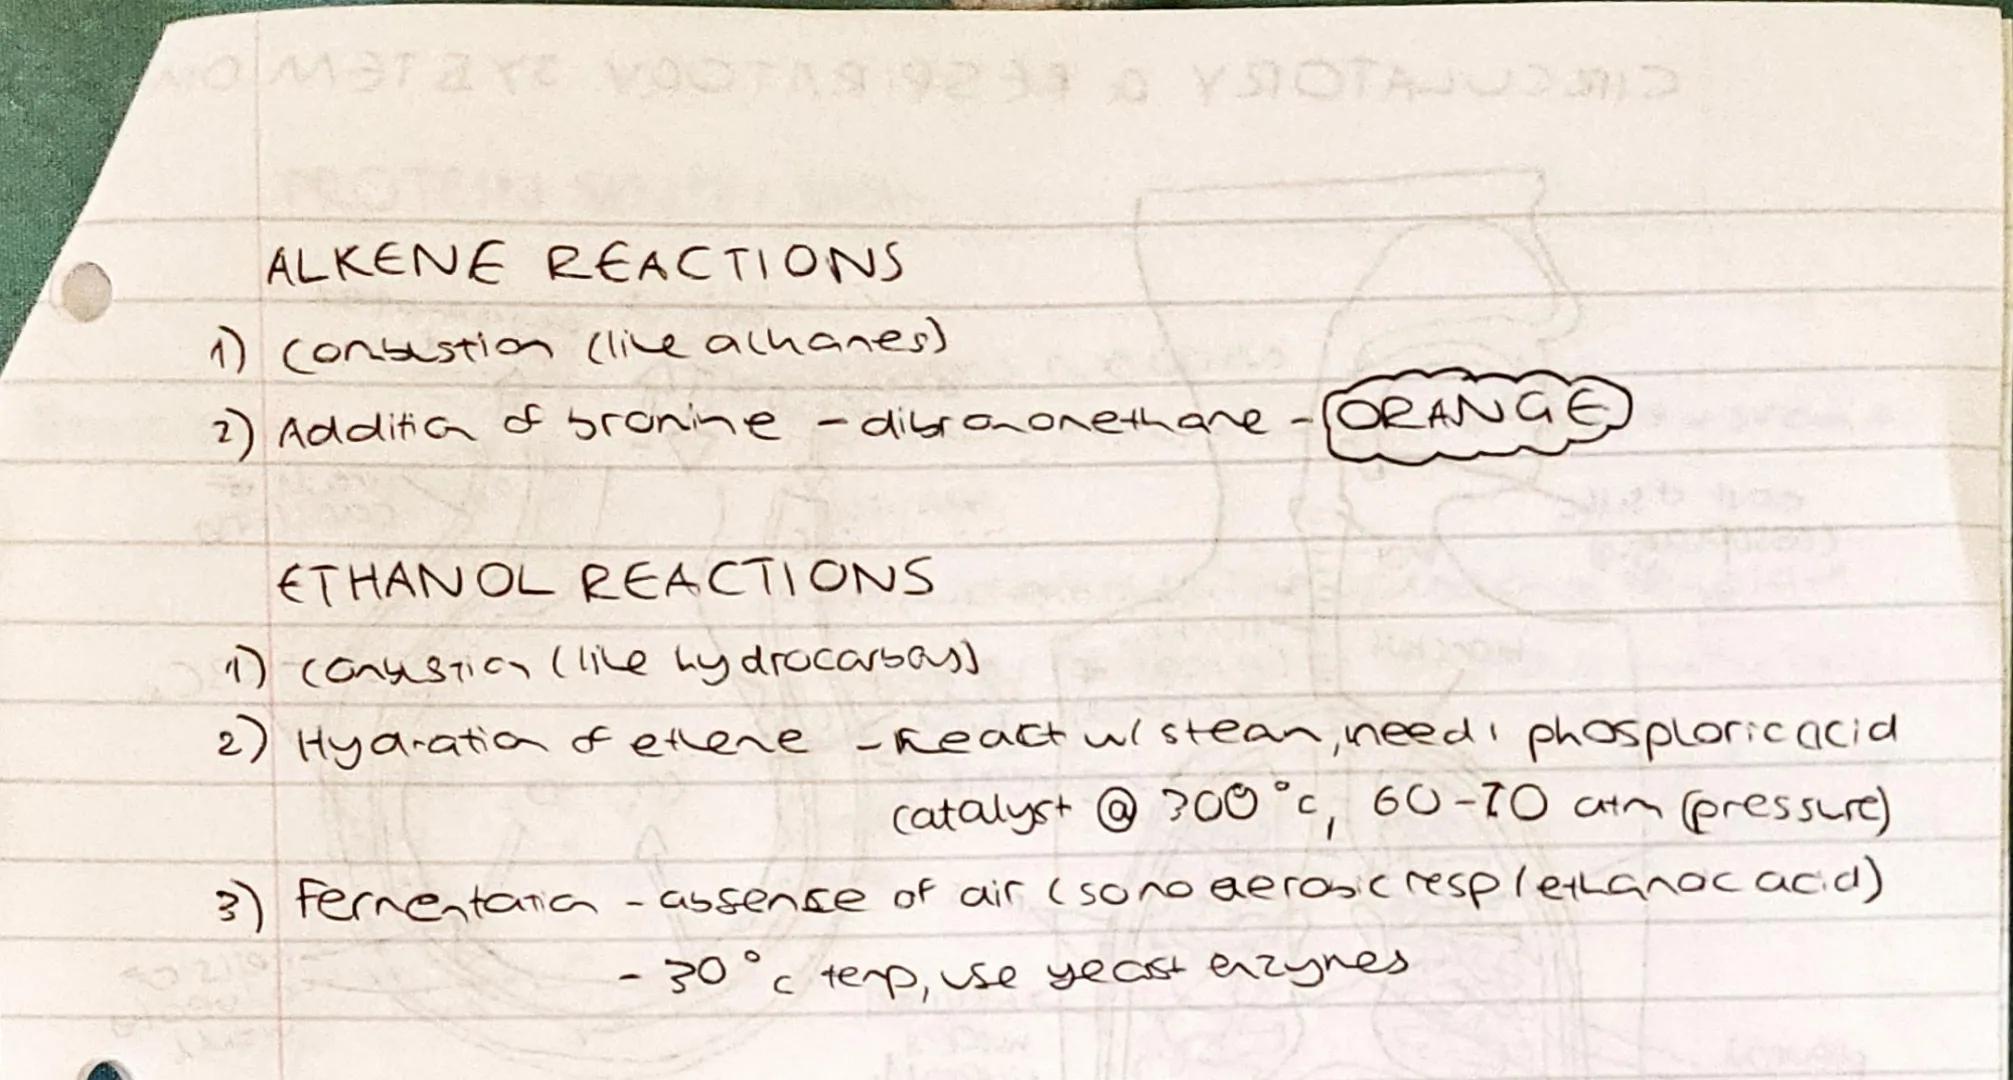 ALKENE REACTIONS
1) Combustion (like alkanes)
2) Addition of bromine - dibromomethane - ORANGE
ETHANOL REACTIONS
1) Combustion (like hydrocarbons)
2) Hydration of ethene - React w/ steam, need phosphoric acid
catalyst @ 300°c, 60-70 atm (pressure)
3) Fermentation - absense of air (so no aerobic resp / ethanoc acid)
- 30°c temp, use yeast enzymes